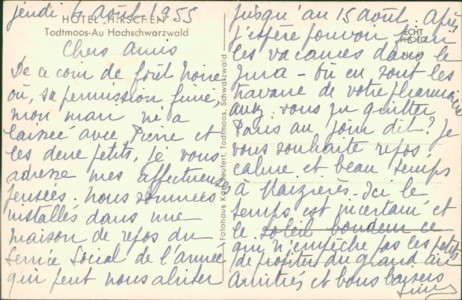 jeudi 4 août 1955
HOTEL HIRSCHEN
Todtmoos-Au Hochschwarzwald
Chers Amis
De ce coin de forêt Noire
où, sa permission finie,
mon mari m'a
laissée avec Pierre et
les deux petits, je vous
adresse mes affectueuses
pensées. Nous sommes
installés dans une
maison de repos du
Service Social de l'armée
qui peut nous abriter
Fotohaus Todtmoos, Schwarzwald
ECHT
FOTO
jusqu'au 15 août. Après
j'espère pouvoir finir
les vacances dans le
Jura - où en sont les
travaux de votre pharmacie
avez vous pu quitter
Paris au jour dit? Je
vous souhaite repos,
calme et beau temps
à Maizières. Ici le
temps est incertain et
le soleil boudeur ce
qui n'empêche pas les petits
de profiter du grand air
Amitiés et bons baisers